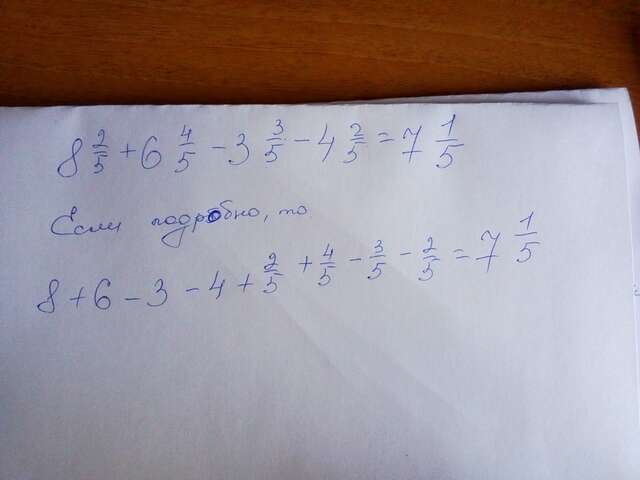 8 2/5 + 6 4/5 - 3 3/5 - 4 2/5 = 7 1/5
Если подробно, то
8 + 6 - 3 - 4 + 2/5 + 4/5 - 3/5 - 2/5 = 7 1/5